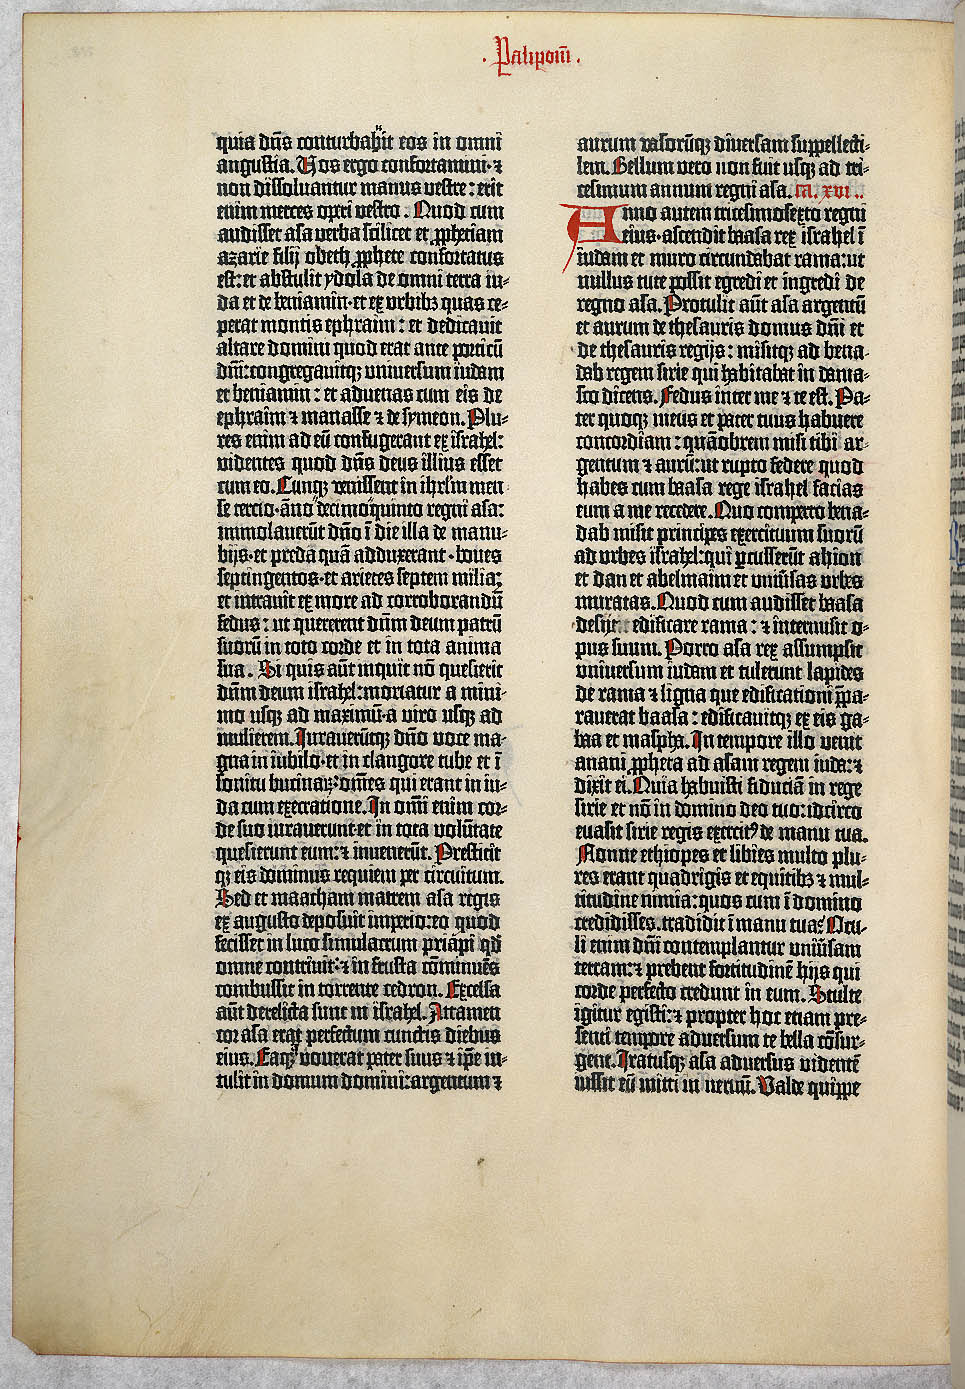 Palipom̄
quia dn̄s conturbaḣit eos in omni
angustia. Vos ergo confortamini · ⁊
non dissoluantur manus vestre : erit
enim merces operi vestro. Quod cum
audisset asa verba scilicet et ꝓphetiam
azarie filij obeth ꝓphete confortatus
est : et abstulit ydola de omni terra iu-
da et de beniamin · et ex vrbibꝫ quas ce-
perat montis ephraim : et dedicauit
altare domini quod erat ante porticū
dn̄i : congregauitqꝫ vniuersum iudam
et beniamin : et aduenas cum eis de
ephraim ⁊ manasse ⁊ de symeon. Plu-
res enim ad eū confugerant ex israhel :
videntes quod dn̄s deus illius esset
cum eo. Cunqꝫ venissent in ihrl̄m men-
se tercio · āno decimoquinto regni asa :
immolauerūt dn̄o ī die illa de manu-
bijs · et preda quā adduxerant · boues
septingentos · et arietes septem milia :
et intrauit ex more ad corroborandū
fedus : ut quererent dn̄m deum patrū
suorū in toto corde et in tota anima
sua. Si quis aūt inquit nō quesierit
dn̄m deum israhel : moriatur a mini-
mo usqꝫ ad maximū · a viro usqꝫ ad
mulierem. Iurauerūtqꝫ dn̄o voce ma-
gna in iubilo · et in clangore tube et ī
sonitu bucinaꝝ · om̄es qui erant in iu-
da cum execratione. In om̄i enim cor-
de suo iurauerunt · et in tota volūtate
quesierunt eum : ⁊ inuenerūt. Prestitit
qꝫ eis dominus requiem per circuitum.
Sed et maacham matrem asa regis
ex augusto deposuit imperio : eo quod
fecisset in luco simulacrum priapi : qd̄
omne contriuit : ⁊ in frusta cōminuēs
combussit in torrente cedron. Excelsa
aūt derelicta sunt in israhel. Attamen
cor asa erat perfectum cunctis diebus
eius. Eaqꝫ vouerat pater suus ⁊ ip̄e in-
tulit in domum domini : argentum ⁊
aurum vasorūqꝫ diuersam suppellecti-
lem. Bellum vero non fuit usqꝫ ad tri-
cesimum annum regni asa. ca. xvi.
Anno autem tricesimosexto regni
eius · ascendit baasa rex israhel ī
iudam et muro circundabat rama : ut
nullus tute possit egredi et ingredi de
regno asa. Protulit aūt asa argentū
et aurum de thesauris domus dn̄i et
de thesauris regijs : misitqꝫ ad bena-
dab regem sirie qui habitabat in dama-
sco dicens. Fedus inter me ⁊ te est. Pa-
ter quoqꝫ meus et pater tuus habuere
concordiam : quāobrem misi tibi ar-
gentum ⁊ aurū : ut rupto federe quod
habes cum baasa rege israhel facias
eum a me recedere. Quo comperto bena-
dab misit principes exercituum suorū
ad vrbes israhel : qui ꝑcusserūt ahion
et dan et abelmaim et vniūsas vrbes
muratas. Quod cum audisset baasa
desijt edificare rama : ⁊ intermisit o-
pus suum. Porro asa rex assumpsit
vniuersum iudam et tulerunt lapides
de rama ⁊ ligna que edificationi p̄pa-
rauerat baasa : edificauitqꝫ ex eis ga-
baa et maspha. In tempore illo venit
anani ꝓpheta ad asam regem iuda : ⁊
dixit ei. Quia habuisti fiduciā in rege
sirie et nō in domino deo tuo : idcirco
euasit sirie regis exercitꝰ de manu tua.
Nonne ethiopes et libies multo plu-
res erant quadrigis et equitibꝫ ⁊ mul-
titudine nimia : quos cum ī domino
credidisses · tradidit ī manu tua? Ocu-
li enim dn̄i contemplantur vniūsam
terram : ⁊ prebent fortitudinē hijs qui
corde perfecto credunt in eum. Stulte
igitur egisti : ⁊ propter hoc etiam pre-
senti tempore aduersum te bella cōsur-
gent. Iratusqꝫ asa aduersus videntē
iussit eū mitti in neruū. Valde quippe